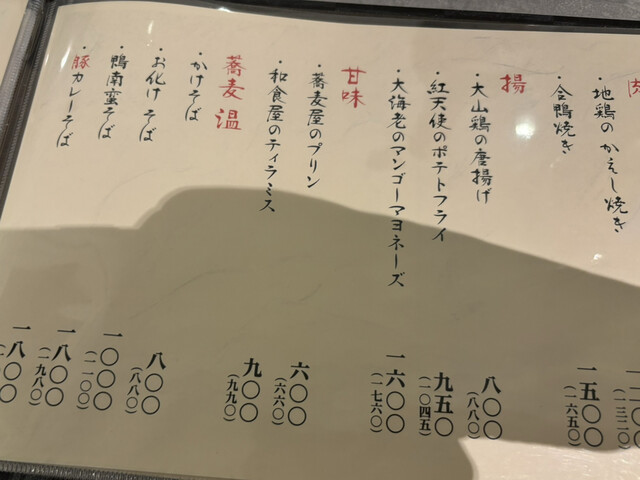 ・地鶏のかえし焼き 一二〇〇
(一三二〇)
・合鴨焼き 一五〇〇
(一六五〇)
揚
・大山鶏の唐揚げ 八〇〇
(八八〇)
・紅天使のポテトフライ 九五〇
(一〇四五)
・大海老のマンゴーマヨネーズ 一六〇〇
(一七六〇)
甘味
・蕎麦屋のプリン 六〇〇
(六六〇)
・和食屋のティラミス 九〇〇
(九九〇)
蕎麦 温
・かけそば 八〇〇
(八八〇)
・お化けそば 一〇〇〇
(一一〇〇)
・鴨南蛮そば 一八〇〇
(一九八〇)
・豚カレーそば 一八〇〇